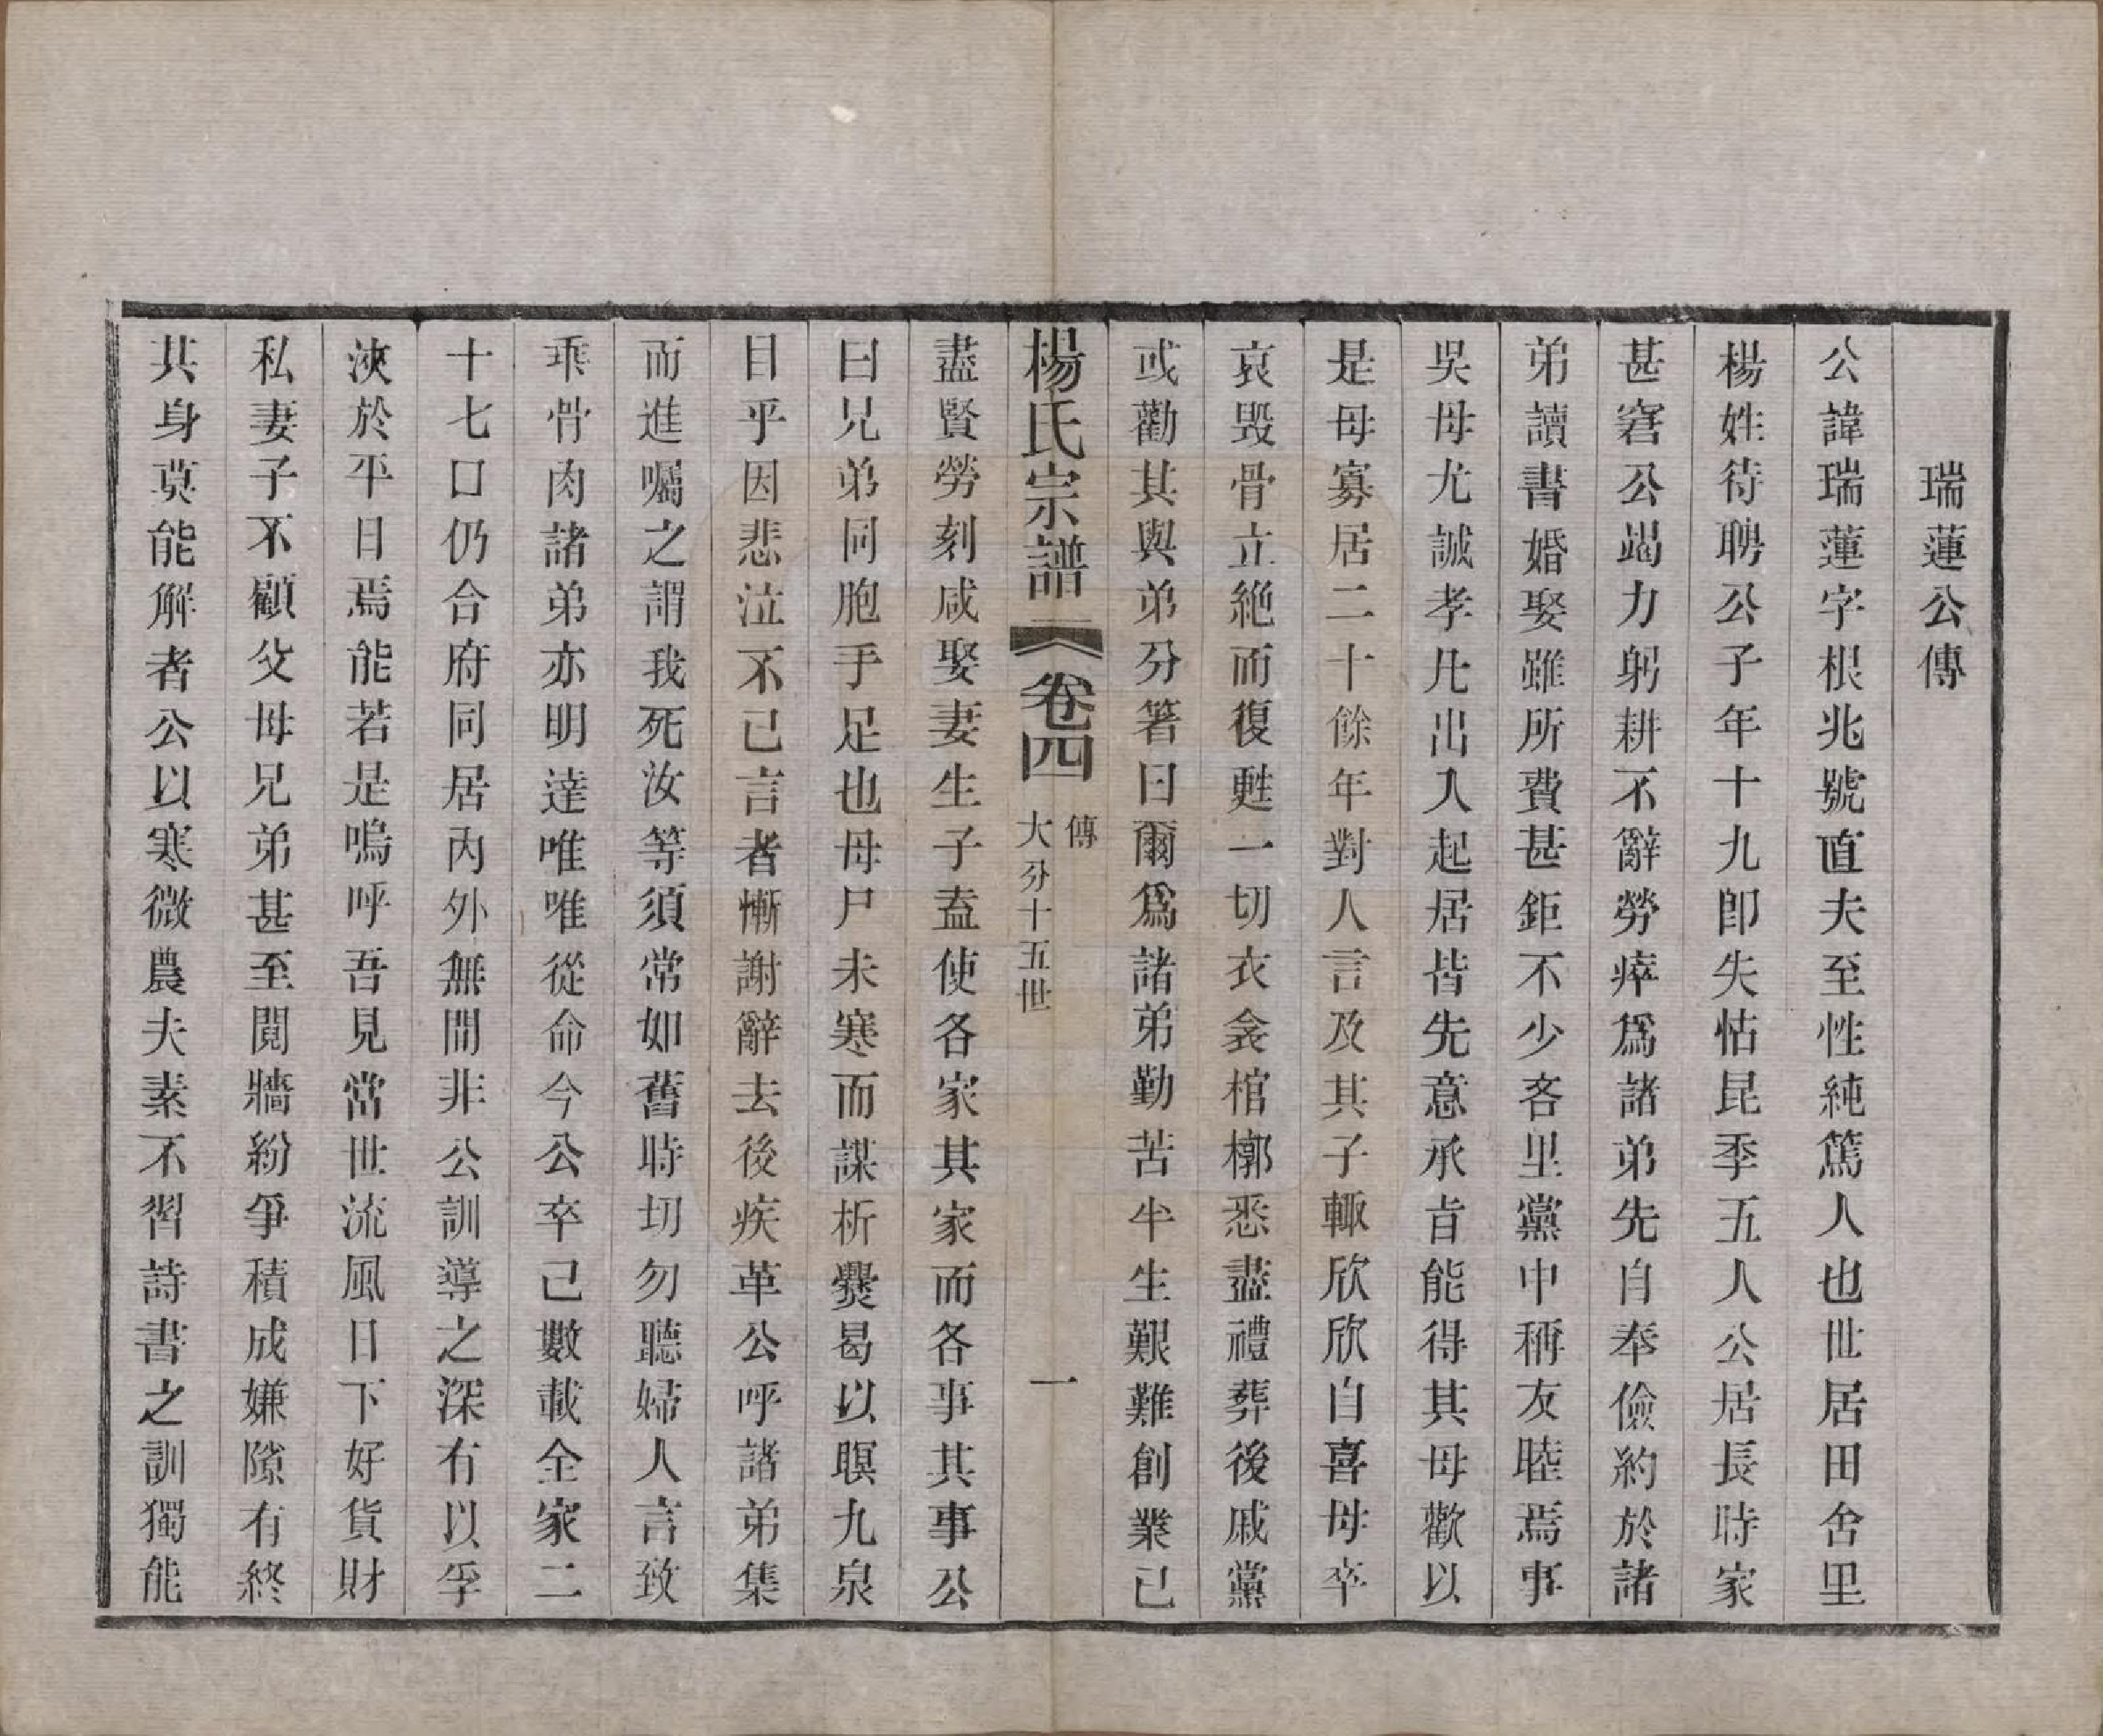 瑞蓮公傳
公諱瑞蓮字根兆號直夫至性純篤人也世居田舍里
楊姓待聘公子年十九卽失怙昆季五人公居長時家
甚窘公竭力躬耕不辭勞瘁爲諸弟先自奉儉約於諸
弟讀書婚娶雖所費甚鉅不少吝里黨中稱友睦焉事
吳母尤誠孝凡出入起居皆先意承旨能得其母歡以
是母寡居二十餘年對人言及其子輙欣欣自喜母卒
哀毀骨立絶而復甦一切衣衾棺槨悉盡禮葬後戚黨
或勸其與弟分箸曰爾爲諸弟勤苦半生艱難創業已
楊氏宗譜 卷四 傳 大分十五世 一
盡賢勞刻咸娶妻生子盍使各家其家而各事其事公
曰兄弟同胞手足也母尸未寒而謀析爨曷以瞑九泉
目乎因悲泣不已言者慚謝辭去後疾革公呼諸弟集
而進囑之謂我死汝等須常如舊時切勿聽婦人言致
乖骨肉諸弟亦明達唯唯從命今公卒已數載全家二
十七口仍合府同居內外無間非公訓導之深有以孚
浹於平日焉能若是嗚呼吾見當世流風日下好貨財
私妻子不顧父母兄弟甚至鬩牆紛爭積成嫌隙有終
其身莫能解者公以寒微農夫素不習詩書之訓獨能